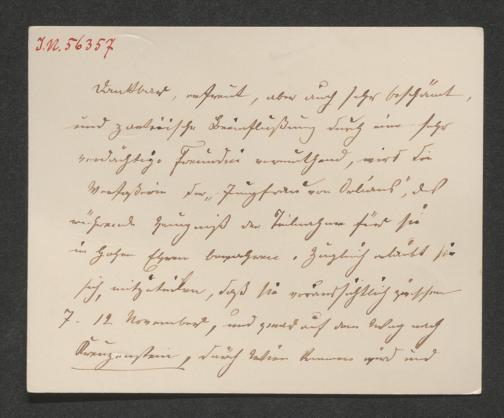 I.N. 56357
Dankbar, erfreut, aber auch sehr beschämt,
und Beeinflußung durch eine sehr
verdächtige Freundin vermuthend, wird die
Verfaßerin der „Jungfrau von Orléans", das
rührende Zeugniß der Teilnahme für sie
in hohen Ehren bewahren. Zugleich erlaubt sie
sich, mitzuteilen, daß sie voraussichtlich zwischen
7. 12 November, und zwar auf dem Weg nach
Kreuzenstein, durch Wien kommen wird und